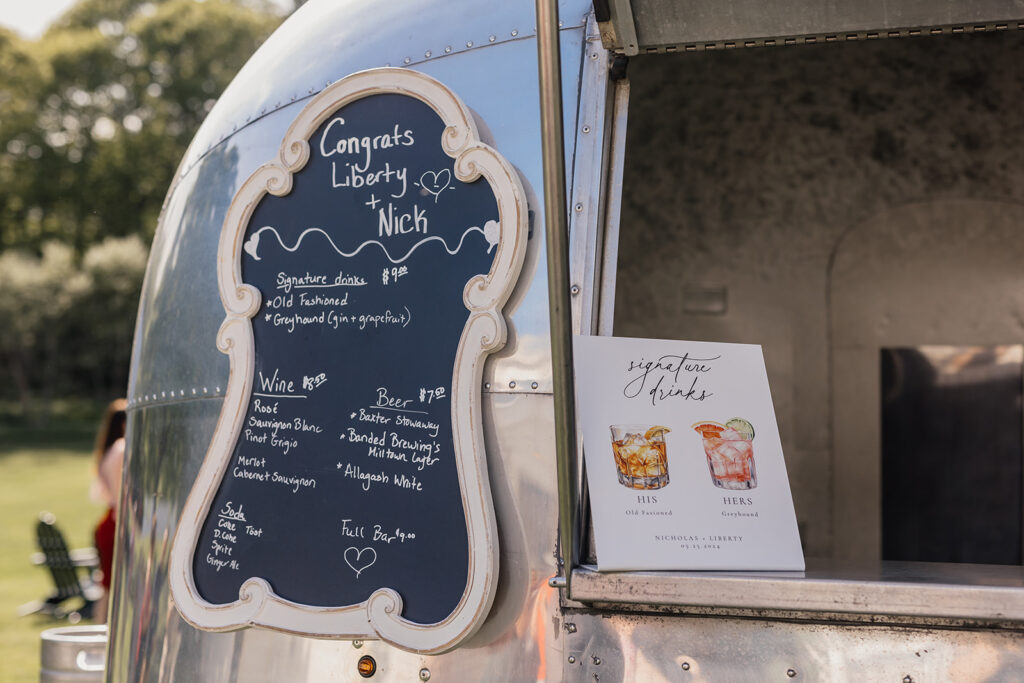 Congrats
Liberty
+
Nick
Signature drinks $9.00
* Old Fashioned
* Greyhound (gin + grapefruit)
Wine $8.50
Rosé
Sauvignon Blanc
Pinot Grigio
Merlot
Cabernet Sauvignon
Beer $7.50
* Baxter Stowaway
* Banded Brewing's
Milltown Lager
* Allagash White
Soda
Coke
D. Coke
Sprite
Ginger Ale
Full Bar $9.00
signature
drinks
HIS
Old Fasioned
HERS
Greyhound
NICHOLAS + LIBERTY
05.25.2024